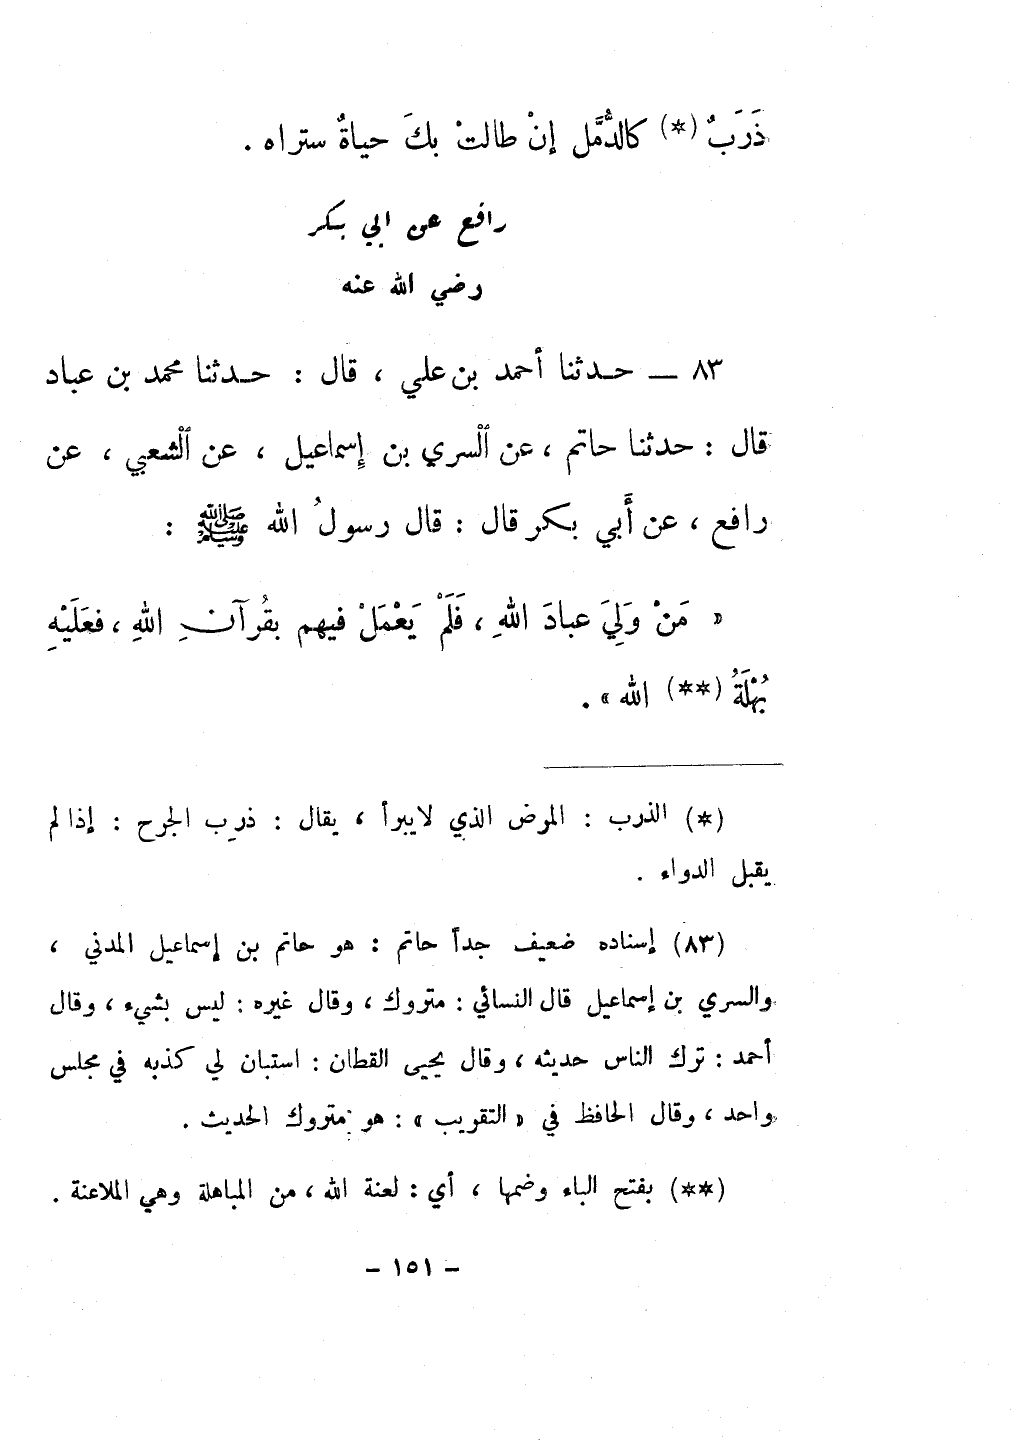 ذَرَبٌ (*) كالدُّمَّل إنْ طالتْ بكَ حياةٌ ستراه .
رافع عن ابي بكر
رضي الله عنه
٨٣ — حدثنا أحمد بن علي ، قال : حدثنا محمد بن عباد
قال : حدثنا حاتم ، عن ٱلسري بن إسماعيل ، عن ٱلشعبي ، عن
رافع ، عن أَبي بكر قال : قال رسولُ الله ﷺ :
« مَنْ وَلِيَ عبادَ اللهِ ، فَلَمْ يَعْمَلْ فيهم بقُرآنِ اللهِ ، فعَلَيْهِ
بُهْلَةُ (**) الله » .
(*) الذرب : المرض الذي لايبرأ ، يقال : ذرِب الجرح : إذا لم
يقبل الدواء .
(٨٣) إسناده ضعيف جداً حاتم : هو حاتم بن إسماعيل المدني ،
والسري بن إسماعيل قال النسائي : متروك ، وقال غيره : ليس بشيء ، وقال
أحمد : ترك الناس حديثه ، وقال يحيى القطان : استبان لي كذبه في مجلس
واحد ، وقال الحافظ في « التقريب » : هو متروك الحديث .
(**) بفتح الباء وضمها ، أي : لعنة الله ، من المباهلة وهي الملاعنة .
- ١٥١ -